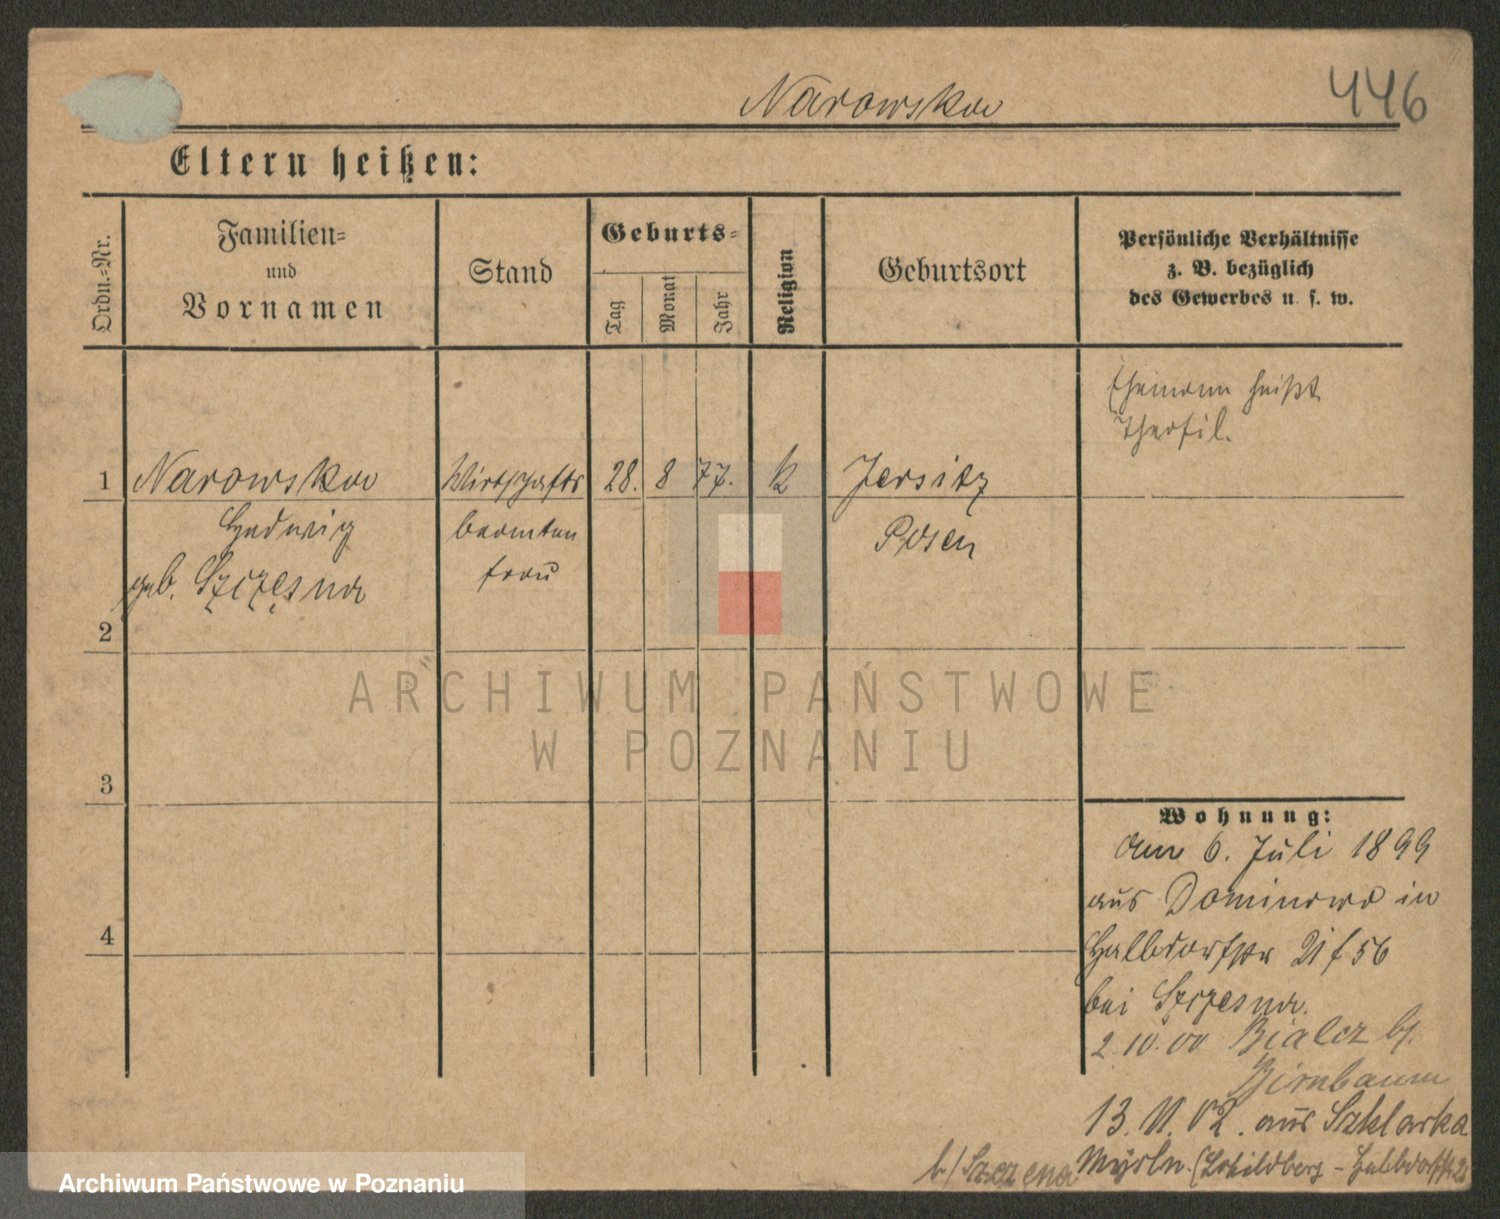 Narowska
446
Eltern heißen:
Ordn.-Nr.
Familien-
und
Vornamen
Stand
Geburts-
Tag
Monat
Jahr
Religion
Geburtsort
Persönliche Verhältnisse
z. B. bezüglich
des Gewerbes u. s. w.
Ehemann heißt
1 Narowska Wirtschafts 28. 8 77. k Jersitz
Hedwig beamten Posen
geb. Szczęsna frau
2
ARCHIWUM PAŃSTWOWE
W POZNANIU
3
4
Wohnung:
am 6. Juli 1899
aus Dominowo in
Halbdorfstr 21 f 56
bei Szczesna.
2.10.00 Bialcz b/.
Birnbaum
13. 11. 02. aus Szklarka
b/ Szczena Myśln. (Schildberg - Halbdorfstr 21
Archiwum Państwowe w Poznaniu